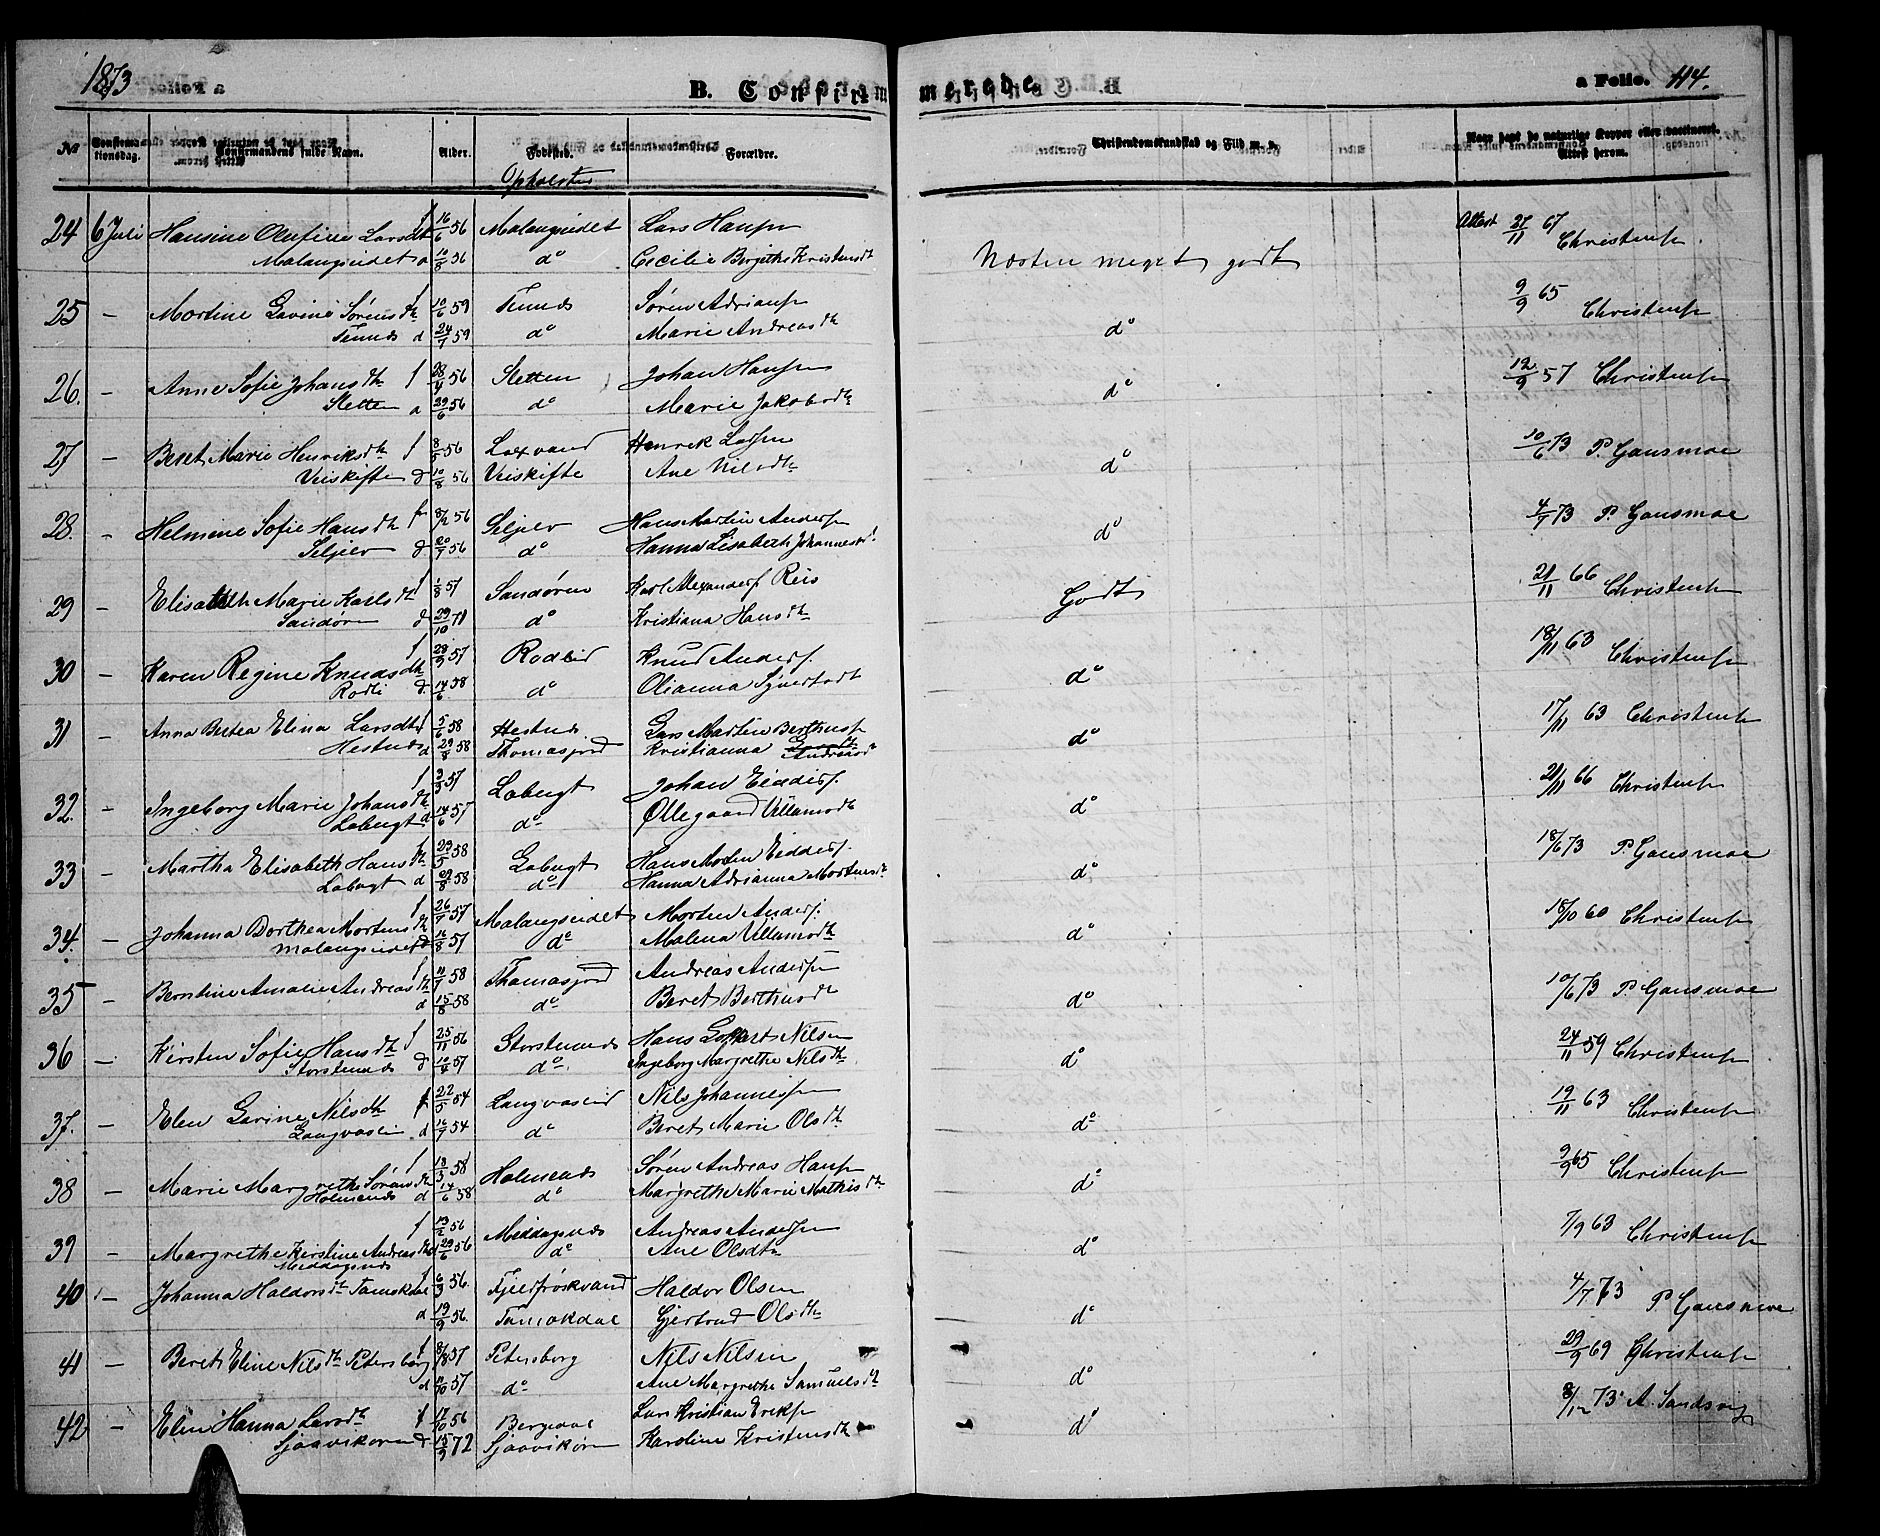 1873
B. Confirmerede.
a Folio. 114.
No Confirmationsdag. Confirmandens fulde Navn. Alder. Fødested. Forældre. Christendomskundskab og Flid m. v. Naar havt de naturlige Kopper eller vaccineret. Attest herom.
Opholsted
24 6 Juli Hansine Olufine Larsdt f 16/6 56 Malangseidet Lars Hansen Næsten meget godt Attest 21/11 67 Christensen
Malangseidet d 10/8 56 do Cecilie Birgithe Kristensdt
25 — Martine Lavine Sørensdt f 10/6 59 Tennes Søren Adriansen do 9/9 65 Christensen
Tennes d 24/7 59 do Marie Andreasdt
26. — Anne Sofie Johansdt f 28/4 56 Sletten Johan Hansen do 12/9 57 Christensen
Sletten d 29/6 56 do Marie Jakobsdt
27 — Beret Marie Henriksdt f 8/5 56 Laxvand Henrik Larsen do 10/6 73 P. Gausmoe
Veiskifte d 10/8 56 Veiskifte Ane Nilsdt
28. — Helmine Sofie Hansdt f 8/2 56 Seljelv Hans Martin Andersen do 4/7 73 P. Gausmoe
Seljelv d 20/7 56 do Hanna Lisabeth Johannesdt
29 — Elisabeth Marie Karlsdt f 1/8 57 Sandøren Karl Alexanders Reis Godt 21/11 66 Christensen
Sandøren d 29/10 71 do Kristiana Hansdt
30 — Karen Regine Knudsdt f 28/9 57 Rodlid Knud Anders. do 18/11 63 Christensen
Rodli d 14/6 58 do Olianna Sjurdsdt
31 — Anna Bertea Elina Larsdt f 5/6 58 Hestnes Lars Martin Berthusen do 17/11 63 Christensen
Hestnes d 29/8 58 Thomasjord Kristianna Andreasdt
32. — Ingeborg Marie Johansdt f 3/3 57 Løbugt Johan Eiders. do 21/11 66 Christensen
Løbugt d 14/6 57 do Øllegaard Villumsdt
33 — Martha Elisabeth Hansdt f 29/5 58 Løbugt Hans Morten Eiders. do 18/6 73 P. Gausmoe
Løbugt d 29/8 58 do Hanna Adrianna Mortensdt
34. — Johanna Dorthea Mortensdt f 26/7 57 Malangseidet Morten Anders. do 18/10 60 Christensen
Malangseidet d 16/8 57 do Malena Villumsdt
35 — Berntine Amalie Andreasdt f 11/7 58 Thomasjord Andreas Andersen do 10/6 73 P. Gausmoe
d 15/8 58 do Beret Berthusdt
36 — Kirsten Sofie Hansdt f 25/11 56 Storstennes Hans Nilsen do 24/11 59 Christensen
Storstennes d 10/4 57 do Ingeborg Margrethe Nilsdt
37. — Elen Lavine Nilsdt f 22/5 54 Langvaseid Nils Johannesen do 19/11 63 Christensen
Langvasei d 16/7 54 do Beret Marie Olsdt
38 — Marie Margrethe Sørensdt f 13/3 58 Holmenes Søren Andreas Hansen do 9/9 65 Christensen
Holmenes d 14/6 58 do Margrethe Marie Mathisdt
39 — Margrethe Kirstine Andreasdt f 13/2 56 Middagsnes Andreas Andersen do 7/9 63 Christensen
Middagsnes d 29/6 56 do Ane Olsdtr
40 — Johanna Haldorsdt Tamokdal f 6/3 56 Fjeldfrøskvand Haldor Olsen do 4/7 73 P. Gausmoe
d 19/9 56 Tamokdal Gjertrud Olsdt
41 — Beret Eline Nilsdt Petersborg f 8/8 57 Petersborg Nils Nilsen do 29/9 69 Christensen
d 11/10 57 do Ane Margrethe Samuelsdt
42 — Elen Hanna Larsdt f 17/10 56 Bergedal Lars Kristian Eriksen do 8/12 73 A. Sandsvig
Sjaavikøren d 15/9 72 Sjaavikøren Karoline Kristensdt